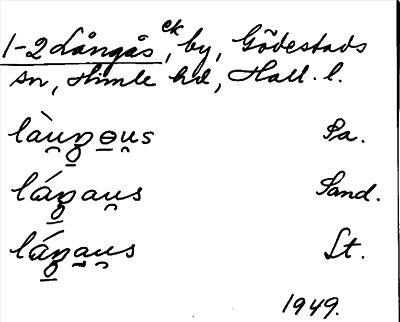 1-2 Långås ek, by, Gödestads
sn, Himle hd, Hall. l.
làu̯ŋo̲u̯s Pa.
láŋau̯s Sand.
láŋa̯u̯s Lt.
1949.